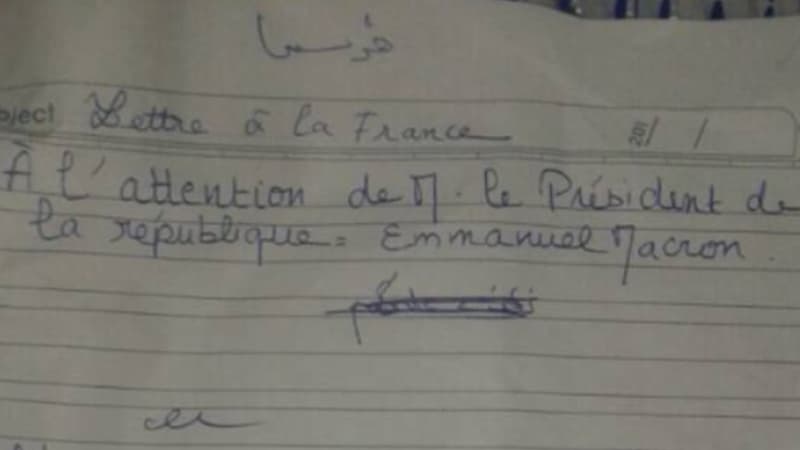 فرنسا
bject Lettre à la France / /
À l'attention de M. le Président de
la république = Emmanuel Macron.